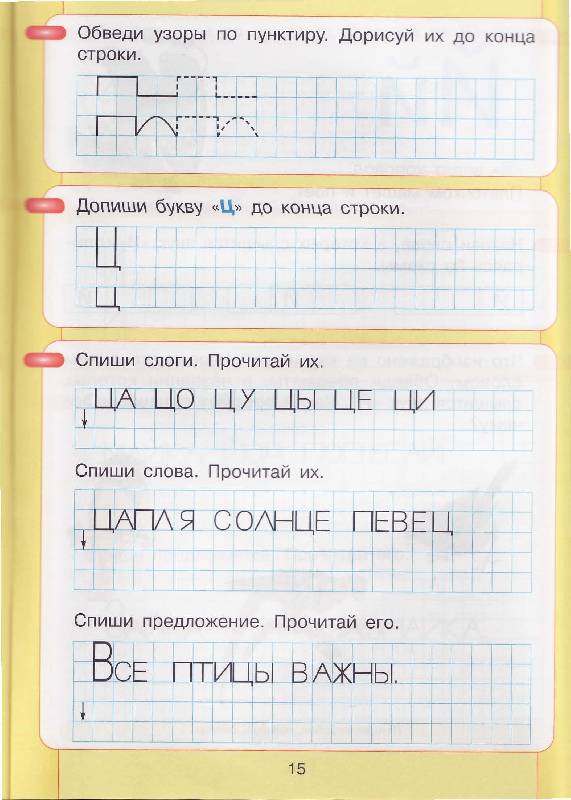 Обведи узоры по пунктиру. Дорисуй их до конца
строки.
Допиши букву «Ц» до конца строки.
Ц
Ц
Спиши слоги. Прочитай их.
ЦА ЦО ЦУ ЦЫ ЦЕ ЦИ
Спиши слова. Прочитай их.
ЦАПЛЯ СОЛНЦЕ ПЕВЕЦ
Спиши предложение. Прочитай его.
ВСЕ ПТИЦЫ ВАЖНЫ.
15